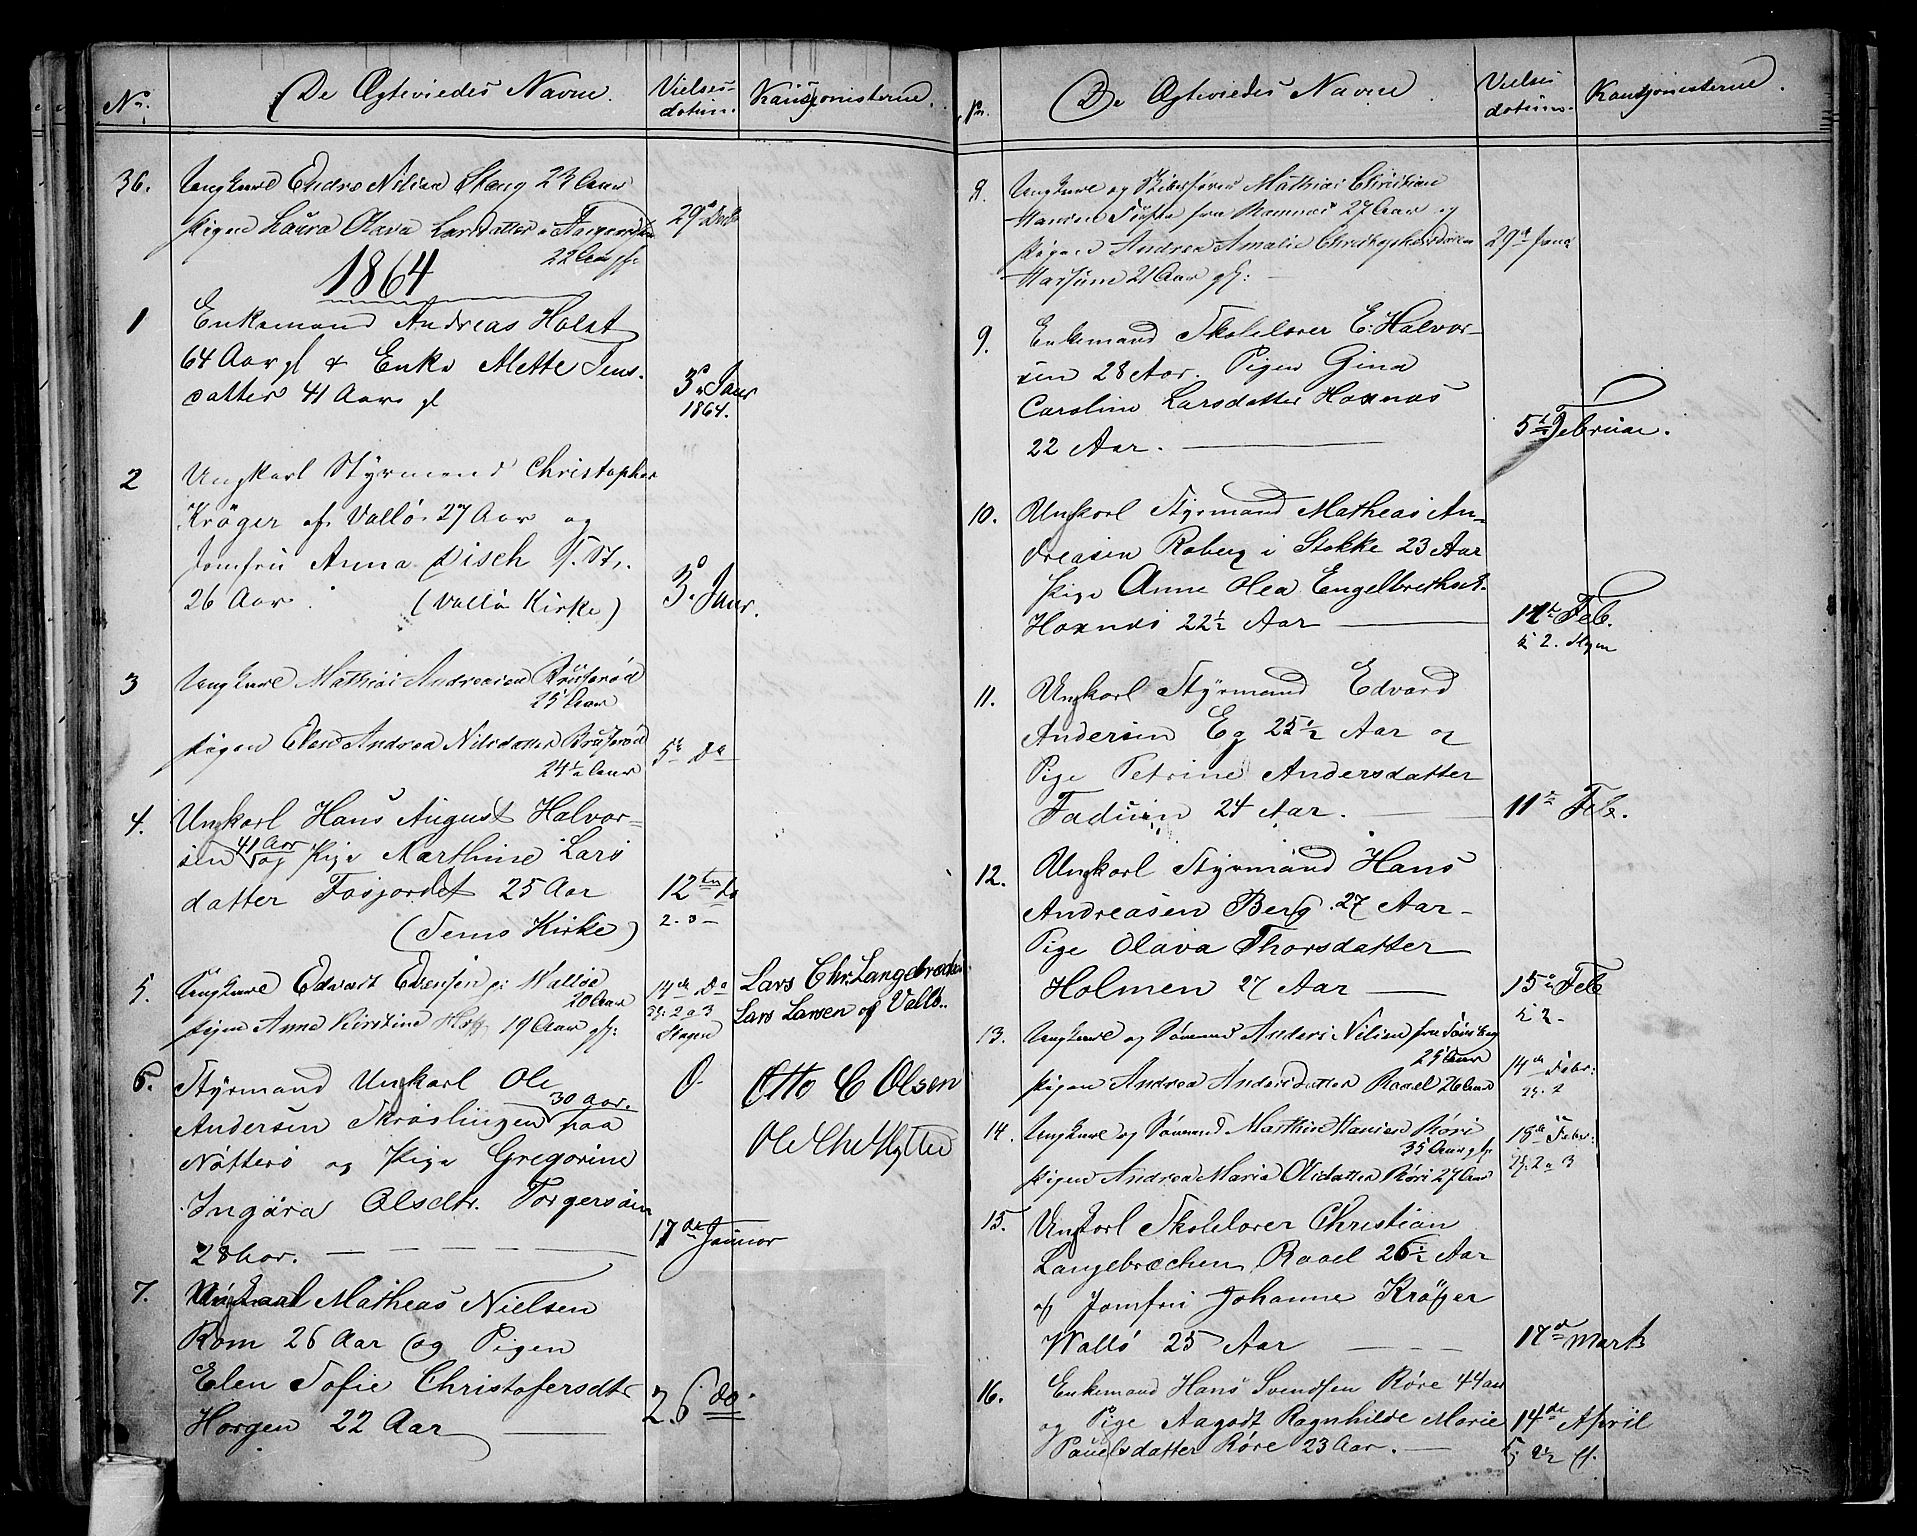 No. De Ægteviedes Navne. Vielses- Kausjonisterne.
datum.
36. Ungkarl Endre Nilsen Stang 23 Aar
Pigen Laura Olava Larsdatter 29d Decb
22 Aar gl:
1864
1 Enkemand Andreas Holst
64 Aar gl & Enke Mette Jens-
datter 41 Aar gl 3d Janr
1864.
2 Ungkarl Styrmand Christopher
Krøger af Vallø 27 Aar og
Jomfru Anna Disch
26 Aar. (Vallø Kirke) 3d Janr.
3 Ungkarl Mathias Andreasen Brusterød
25 Aar
Pigen Elen Andrea Nilsdatter Brusterød
24½ Aar 5te do
4. Ungkarl Hans August Halvor-
sen 41 Aar og Pige Marthine Lars
datter Fosjordet 25 Aar 12te do
(Sems Kirke) 2. 3
5. Ungkarl Edvart Evensen Walløe Lars Chr. Langebræchen
20 Aar 14de do
Pigen Anne Kirstine 19 Aar gl: 2 a 3 Lars Larsen af Vallø..
6. Styrmand Ungkarl Ole 0 Otto C Olsen
30 Aar.
Andersen Skrøslingen paa Ole Chr Hytten
Nøtterø og Pige Gregorine
Ingåra Olsdtr. Torgersøen
28 Aar. 17de Januar
7. Ungkarl Matheas Nielsen
Rom 26 Aar og Pigen
Elen Sofie Christofersdtr
Horgen 22 Aar 26 do
No. De Ægteviedes Navne. Vielses Kausjonisterne.
datum.
8. Ungkarl og Mathias Christian
Hansen fra Ramnæs 27 Aar og
Pigen Andrea Amalie Christophersdatter 29d Janr
21 Aar gl:
9. Enkemand Skolelærer E: Halvor-
sen 28 Aar. Pigen Gina
Caroline Larsdatter Hoxnæs
22 Aar. 5te Februar.
10. Ungkarl Styrmand Matheas An-
dreasen Roberg i Stokke 23 Aar
Pige Anne Olea Engelbrethsd.
Hoxnæs 22½ Aar 12te Feb.
k 2.
11. Ungkarl Styrmand Edvard
Andersen Eg 25½ Aar og
Pige Petrine Andersdatter
Faduen 24 Aar. 11te Feb.
12. Ungkarl Styrmand Hans
Andreasen Berg 27 Aar
Pige Olava Thorsdatter
Holmen 27 Aar 15de Feb
k 2
13. Ungkarl og Sømand Anders Nilsen fra Tønsberg
25 Aar 14de Febr:
Pigen Andrea Andersdatter Raael 26 Aar 2
14. Ungkarl og Sømand Mathias Hansen Røri 18de Febr:
35 Aar gl:
Pigen Andrea Maria Olsdatter Røri 27 Aar 2 a 3
15. Ungkarl Skolelærer Christian
Langebræchen, Raael 26½ Aar
og Jomfru Johanne Krøger
Wallø 25 Aar 17de Marts
16. Enkemand Hans Svendsen Røre 44 aar
og Pige Aagodt Ragnhilde Marie 14de April
Pauelsdatter Røre 23 Aar.